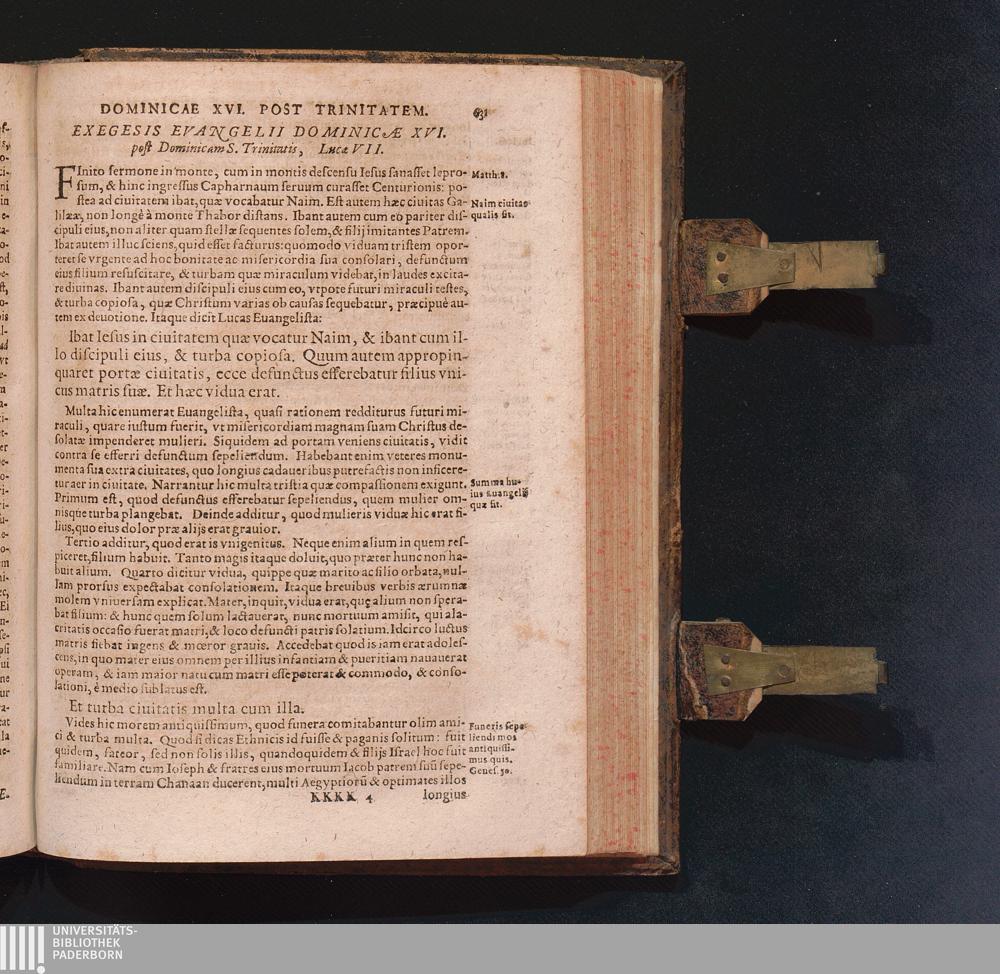 DOMINICAE XVI. POST TRINITATEM. 631
EXEGESIS EVANGELII DOMINICÆ XVI.
post Dominicam S. Trinitatis, Lucæ VII.
FInito sermone in monte, cum in montis descensu Iesus sanasset lepro-
sum, & hinc ingressus Capharnaum seruum curasset Centurionis: po-
stea ad ciuitatem ibat, quæ vocabatur Naim. Est autem hæc ciuitas Ga-
lilææ, non longè à monte Thabor distans. Ibant autem cum eo pariter dis-
cipuli eius, non aliter quam stellæ sequentes solem, & filij imitantes Patrem.
Ibat autem illuc sciens, quid esset facturus: quomodo viduam tristem opor-
teret se vrgente ad hoc bonitate ac misericordia sua consolari, defunctum
eius filium resuscitare, & turbam quæ miraculum videbat, in laudes excita-
re diuinas. Ibant autem discipuli eius cum eo, vtpote futuri miraculi testes,
& turba copiosa, quæ Christum varias ob causas sequebatur, præcipuè au-
tem ex deuotione. Itaque dicit Lucas Euangelista:
Matth. 8.
Naim ciuitas
qualis sit.
Ibat Iesus in ciuitatem quæ vocatur Naim, & ibant cum il-
lo discipuli eius, & turba copiosa. Quum autem appropin-
quaret portæ ciuitatis, ecce defunctus efferebatur filius vni-
cus matris suæ. Et hæc vidua erat.
Multa hic enumerat Euangelista, quasi rationem redditurus futuri mi-
raculi, quare iustum fuerit, vt misericordiam magnam suam Christus de-
solatæ impenderet mulieri. Siquidem ad portam veniens ciuitatis, vidit
contra se efferri defunctum sepeliendum. Habebant enim veteres monu-
menta sua extra ciuitates, quo longius cadaueribus putrefactis non inficere-
tur aer in ciuitate. Narrantur hic multa tristia quæ compassionem exigunt.
Primum est, quod defunctus efferebatur sepeliendus, quem mulier om-
nisque turba plangebat. Deinde additur, quod mulieris viduæ hic erat fi-
lius, quo eius dolor præ alijs erat grauior.
Summa hu-
ius Euangelij
quæ sit.
Tertio additur, quod erat is vnigenitus. Neque enim alium in quem res-
piceret, filium habuit. Tanto magis itaque doluit, quo præter hunc non ha-
buit alium. Quarto dicitur vidua, quippe quæ marito ac filio orbata, nul-
lam prorsus expectabat consolationem. Itaque breuibus verbis ærumnæ
molem vniuersam explicat. Mater, inquit, vidua erat, quę alium non spera-
bat filium: & hunc quem solum lactauerat, nunc mortuum amisit, qui ala-
critatis occasio fuerat matri, & loco defuncti patris solatium. Idcirco luctus
matris fiebat ingens & mœror grauis. Accedebat quod is iam erat adoles-
cens, in quo mater eius omnem per illius infantiam & pueritiam nauauerat
operam, & iam maior natu cum matri esse poterat & commodo, & conso-
lationi, è medio sublatus est.
Et turba ciuitatis multa cum illa.
Vides hic morem antiquissimum, quod funera comitabantur olim ami-
ci & turba multa. Quod si dicas Ethnicis id fuisse & paganis solitum: fuit
quidem, fateor, sed non solis illis, quandoquidem & filijs Israel hoc fuit
familiare. Nam cum Ioseph & fratres eius mortuum Iacob patrem suũ sepe-
liendum in terram Chanaan ducerent, multi Aegyptiorũ & optimates illos
Funeris sepe-
liendi mos
antiquissi-
mus quis.
Genes. 50.
KKKK 4 longius
UNIVERSITÄTS-
BIBLIOTHEK
PADERBORN